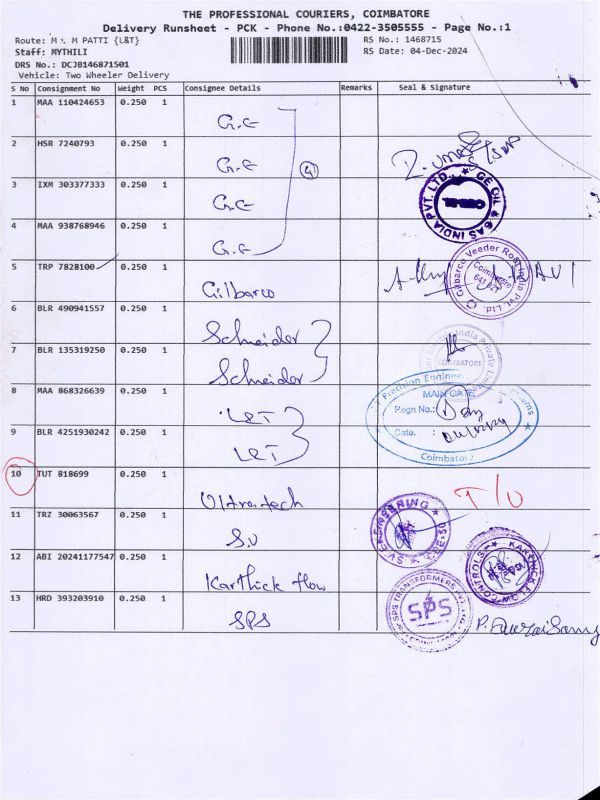 THE PROFESSIONAL COURIERS, COIMBATORE
Delivery Runsheet - PCK - Phone No.:0422-3505555 - Page No.:1
Route: M . M PATTI {L&T} RS No.: 1468715
Staff: MYTHILI RS Date: 04-Dec-2024
DRS No.: DCJB146871501
Vehicle: Two Wheeler Delivery
S No Consignment No Weight PCS Consignee Details Remarks Seal & Signature
1 MAA 110424653 0.250 1 G.E
2 HSR 7240793 0.250 1 G.E
3 IXM 303377333 0.250 1 G.E
4 MAA 938768946 0.250 1 G.E
GE OIL & GAS INDIA PVT. LTD.
5 TRP 7828100 0.250 1 Gilbarco
Gilbarco Veeder Root India Pvt. Ltd.
Coimbatore
6 BLR 490941557 0.250 1 Schneider
7 BLR 135319250 0.250 1 Schneider
India Private
COIMBATORE
8 MAA 868326639 0.250 1 L&T
9 BLR 4251930242 0.250 1 L&T
Precision Enginee
MAIN GATE
Regn No.:
Date. :
Coimbator
10 TUT 818699 0.250 1 Ultratech T/O
11 TRZ 30063567 0.250 1 S.V
SV ENGINEERING
12 ABI 20241177547 0.250 1 Karthick flow
KARTHICK FLOW CONTROLS
13 HRD 393203910 0.250 1 SPS
For SPS TRANSFORMERS
SPS